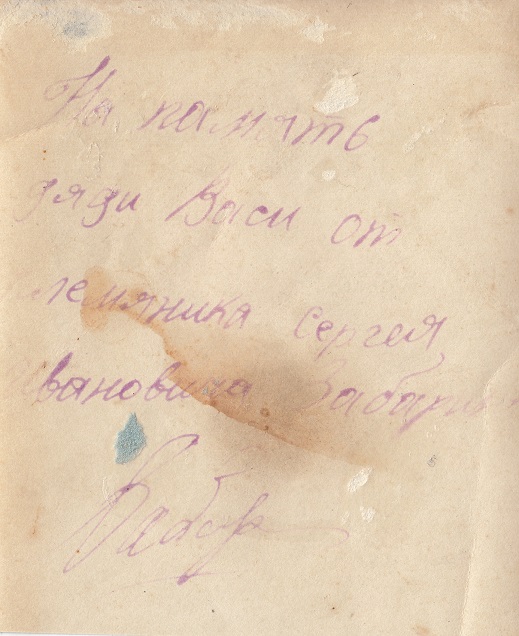 На память
дяди Васи от
лемяника Сергея
Ивановича Забарин